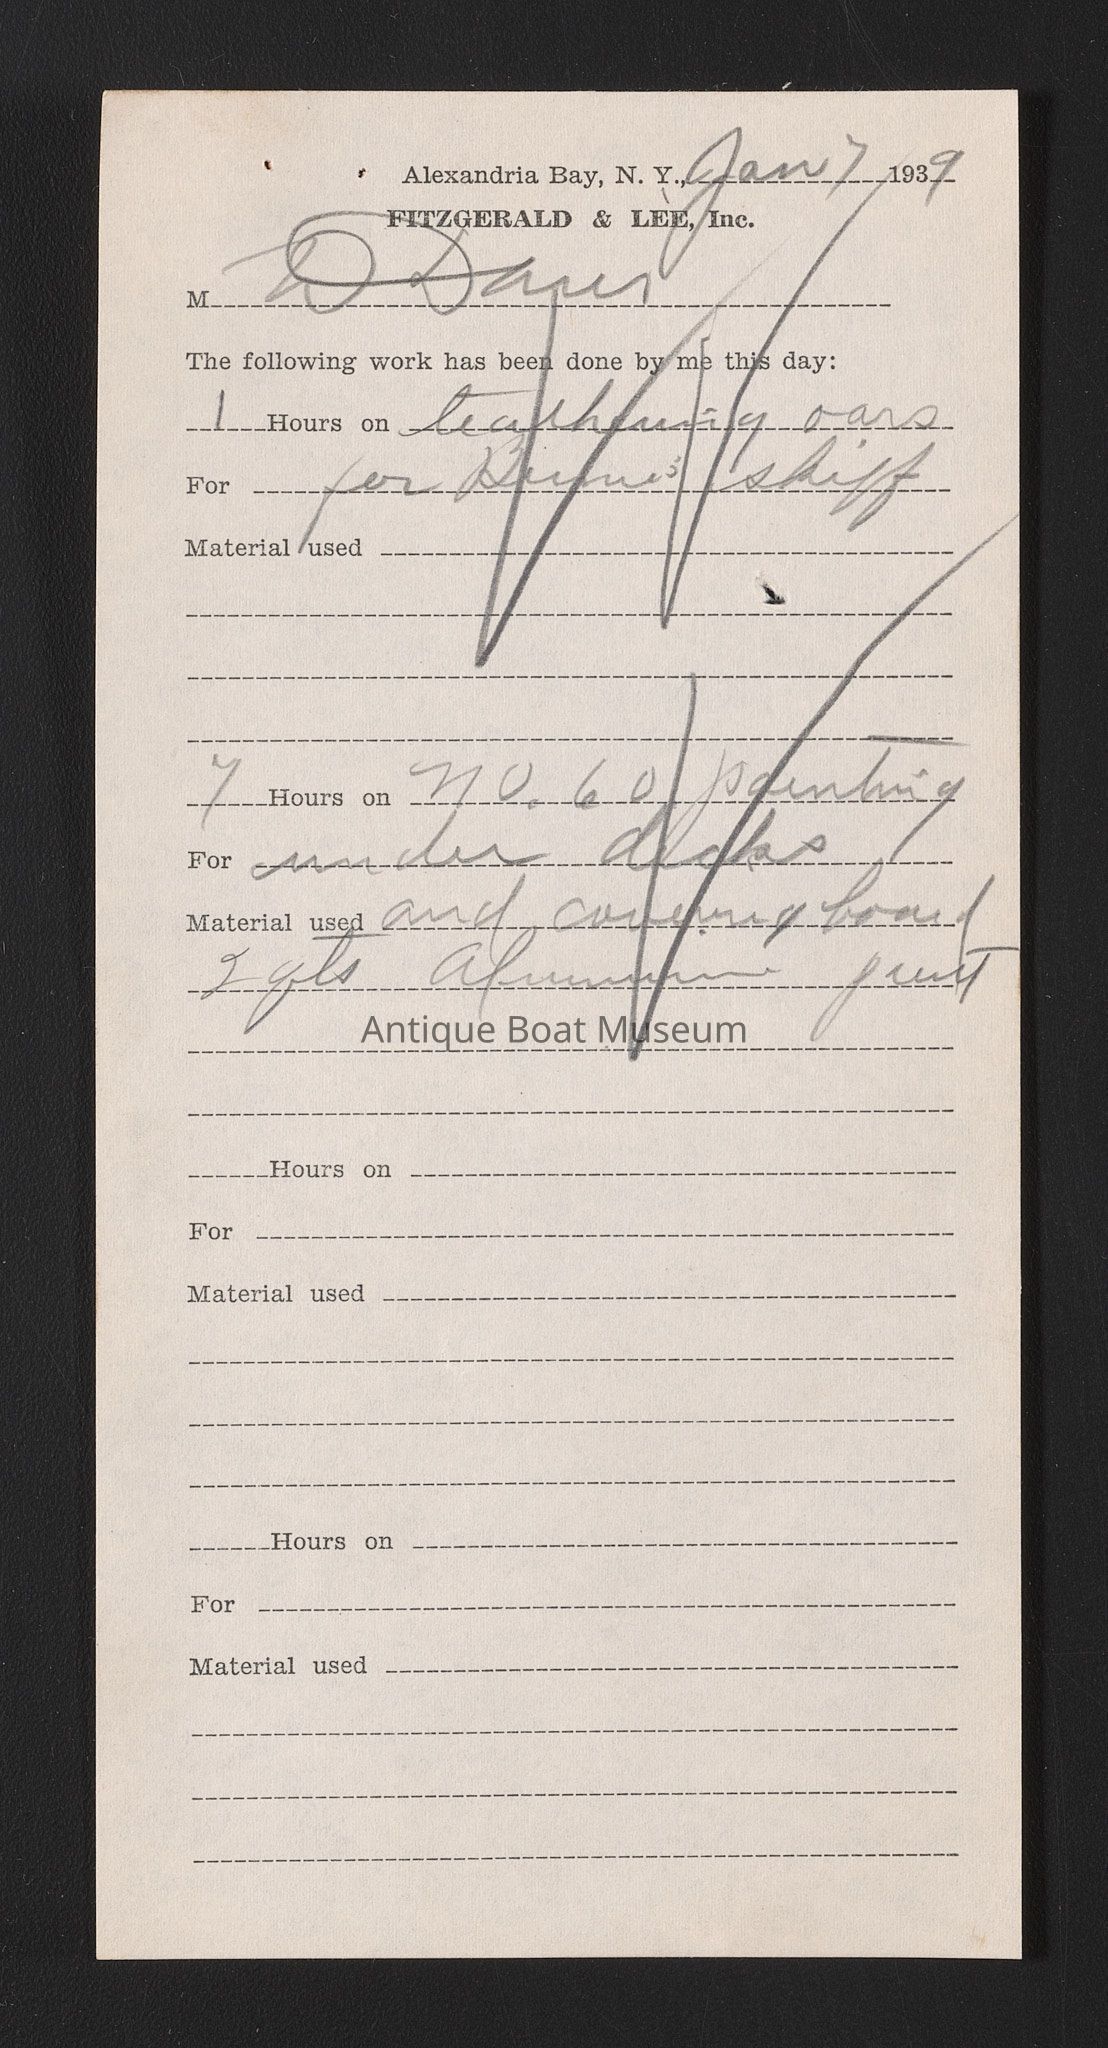 Alexandria Bay, N. Y., Jan 7 1939
FITZGERALD & LEE, Inc.
M D Davis
The following work has been done by me this day:
1 Hours on leathering oars
For for skiff
Material used
7 Hours on NO. 60 painting
For under decks
Material used and covering board
2 qts Aluminum
Antique Boat Museum
Hours on
For
Material used
Hours on
For
Material used